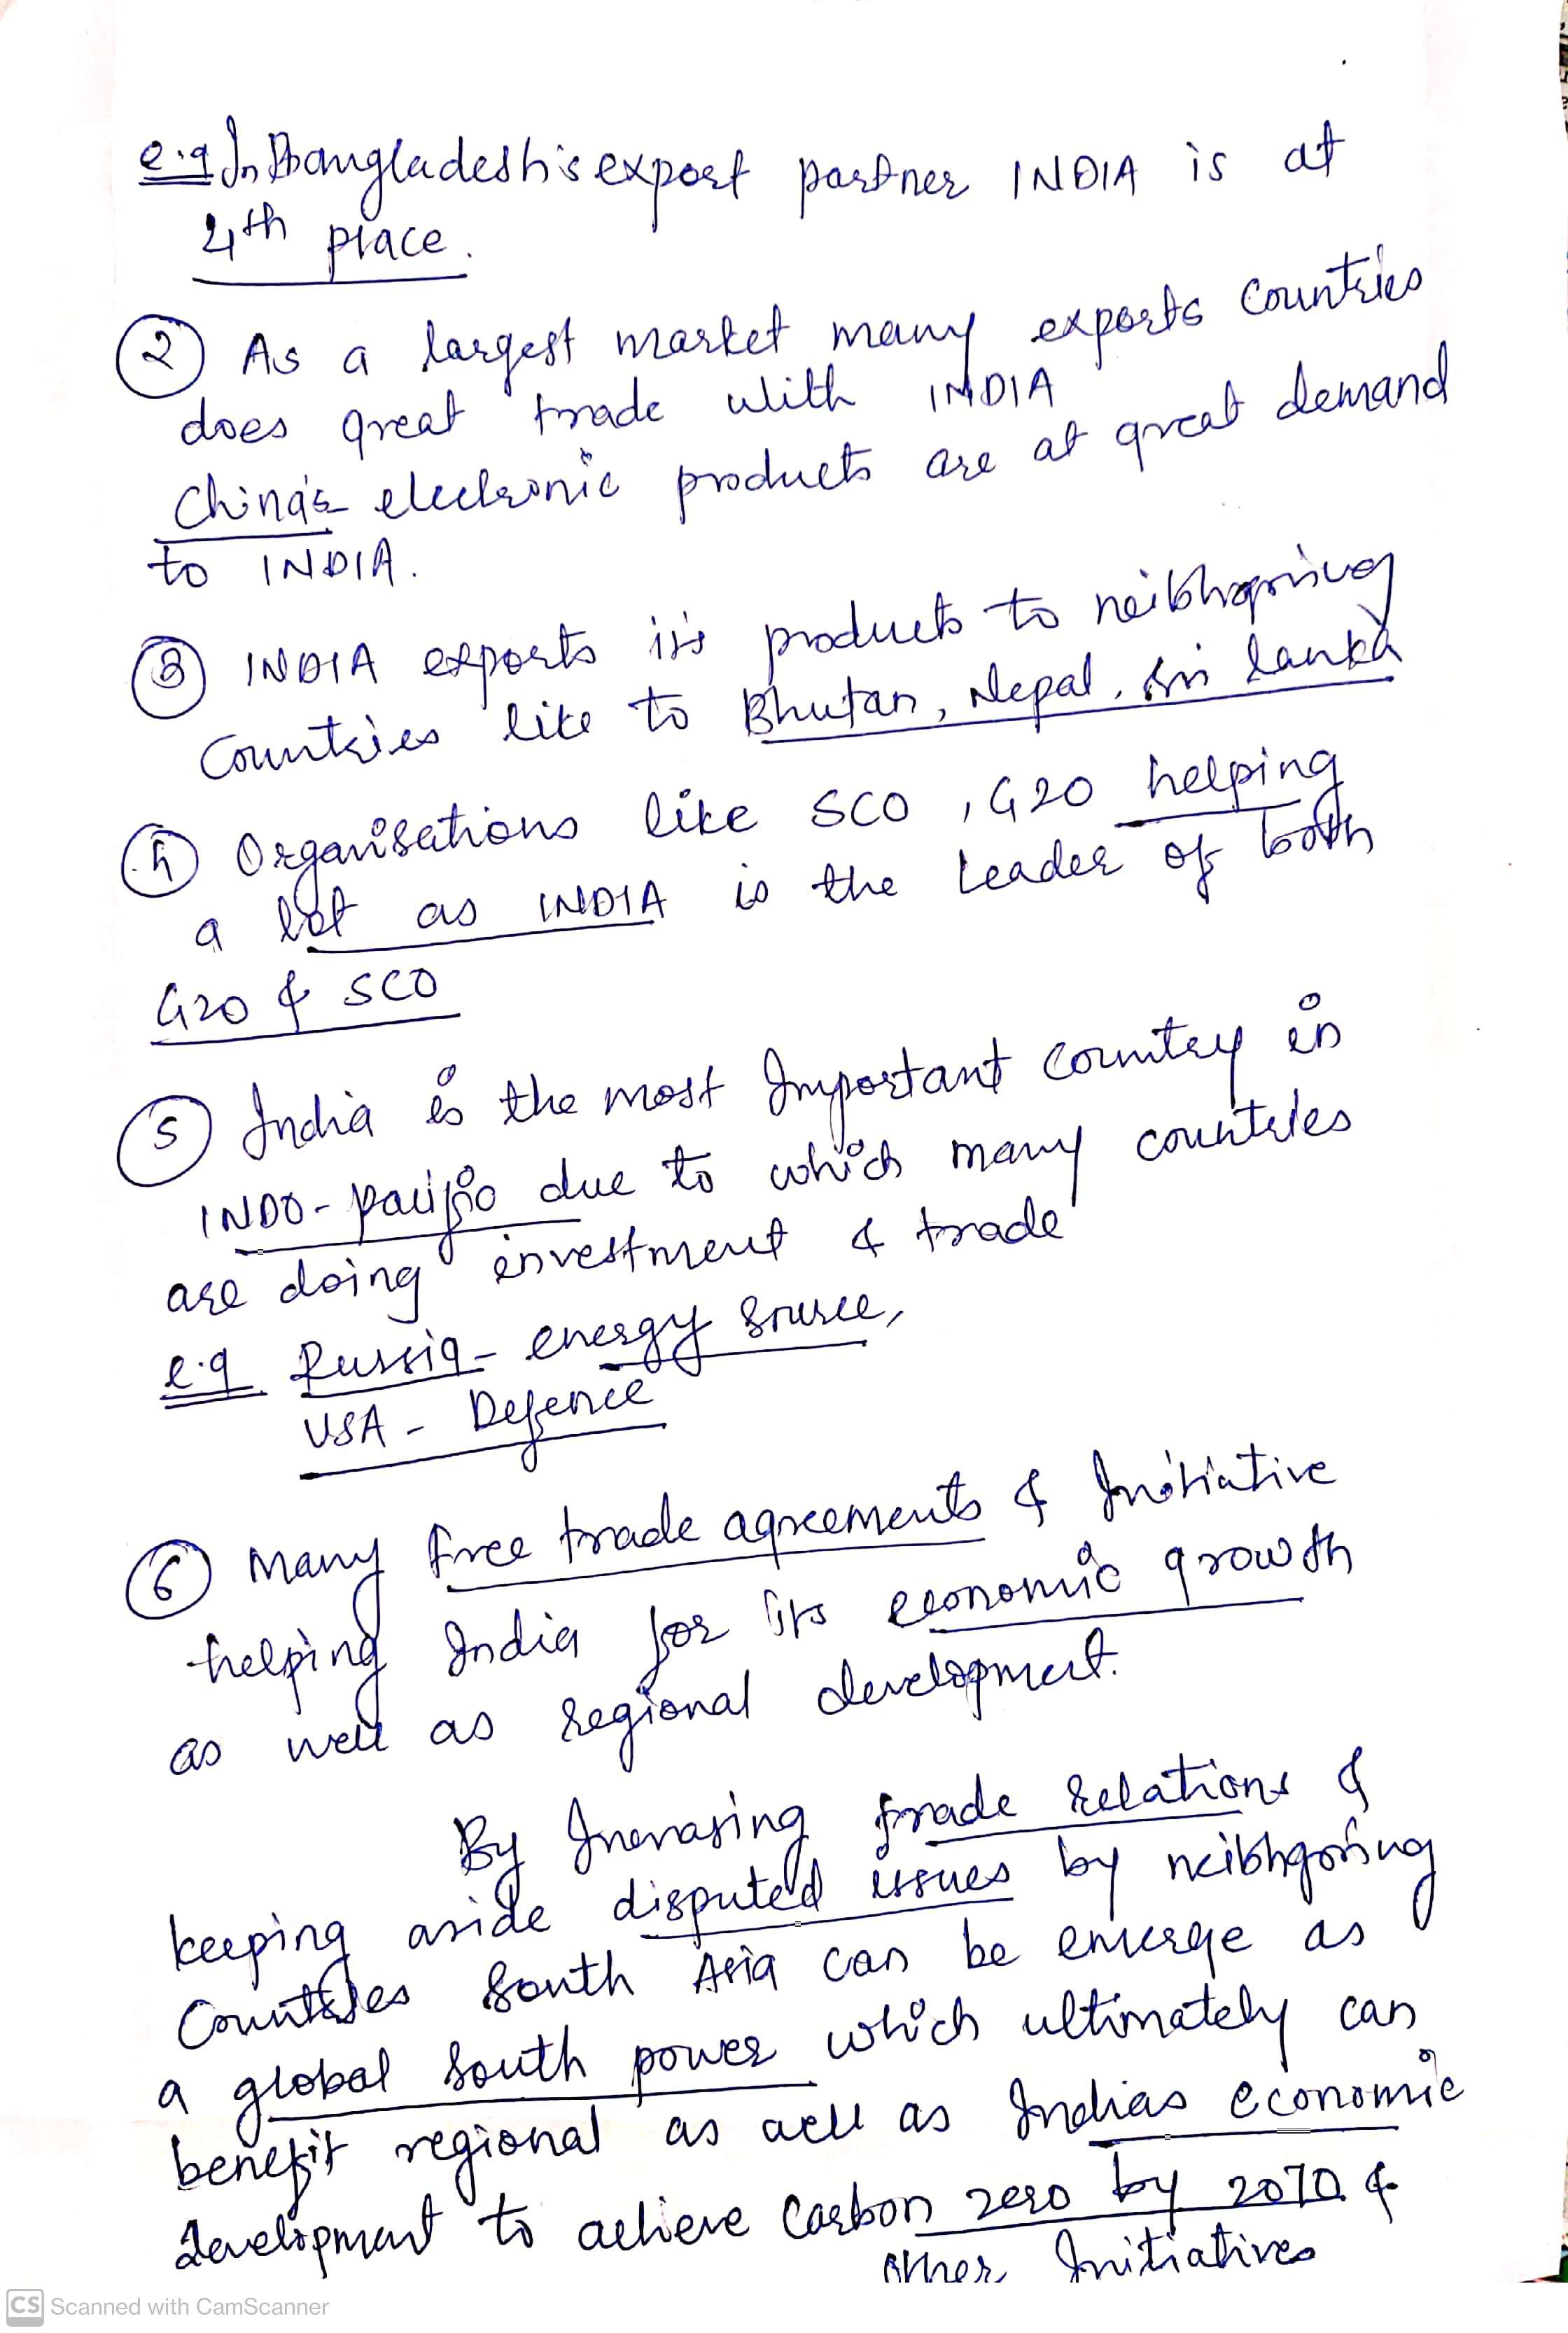 e.g In Bangladesh's export partner INDIA is at
4th place.
② As a largest market many exports countries
does great trade with INDIA
China's electronic products are at great demand
to INDIA.
③ INDIA exports it's products to neibhgoring
countries like to Bhutan, Nepal, Sri lanka
④ Organisations like SCO, G20 helping
a lot as INDIA is the Leader of both
G20 & SCO
⑤ India is the most Important country in
INDO-pacific due to which many countries
are doing investment & trade
e.g. Russia - energy source,
USA - Defence
⑥ Many free trade agreements & Initiative
helping India for its economic growth
as well as regional development.
By Increasing trade relations &
keeping aside disputed issues by neibhgoring
Countries South Asia can be emerge as
a global South power which ultimately can
benefit regional as well as Indias economic
development to achieve Carbon zero by 2070 &
other Initiatives
CS Scanned with CamScanner